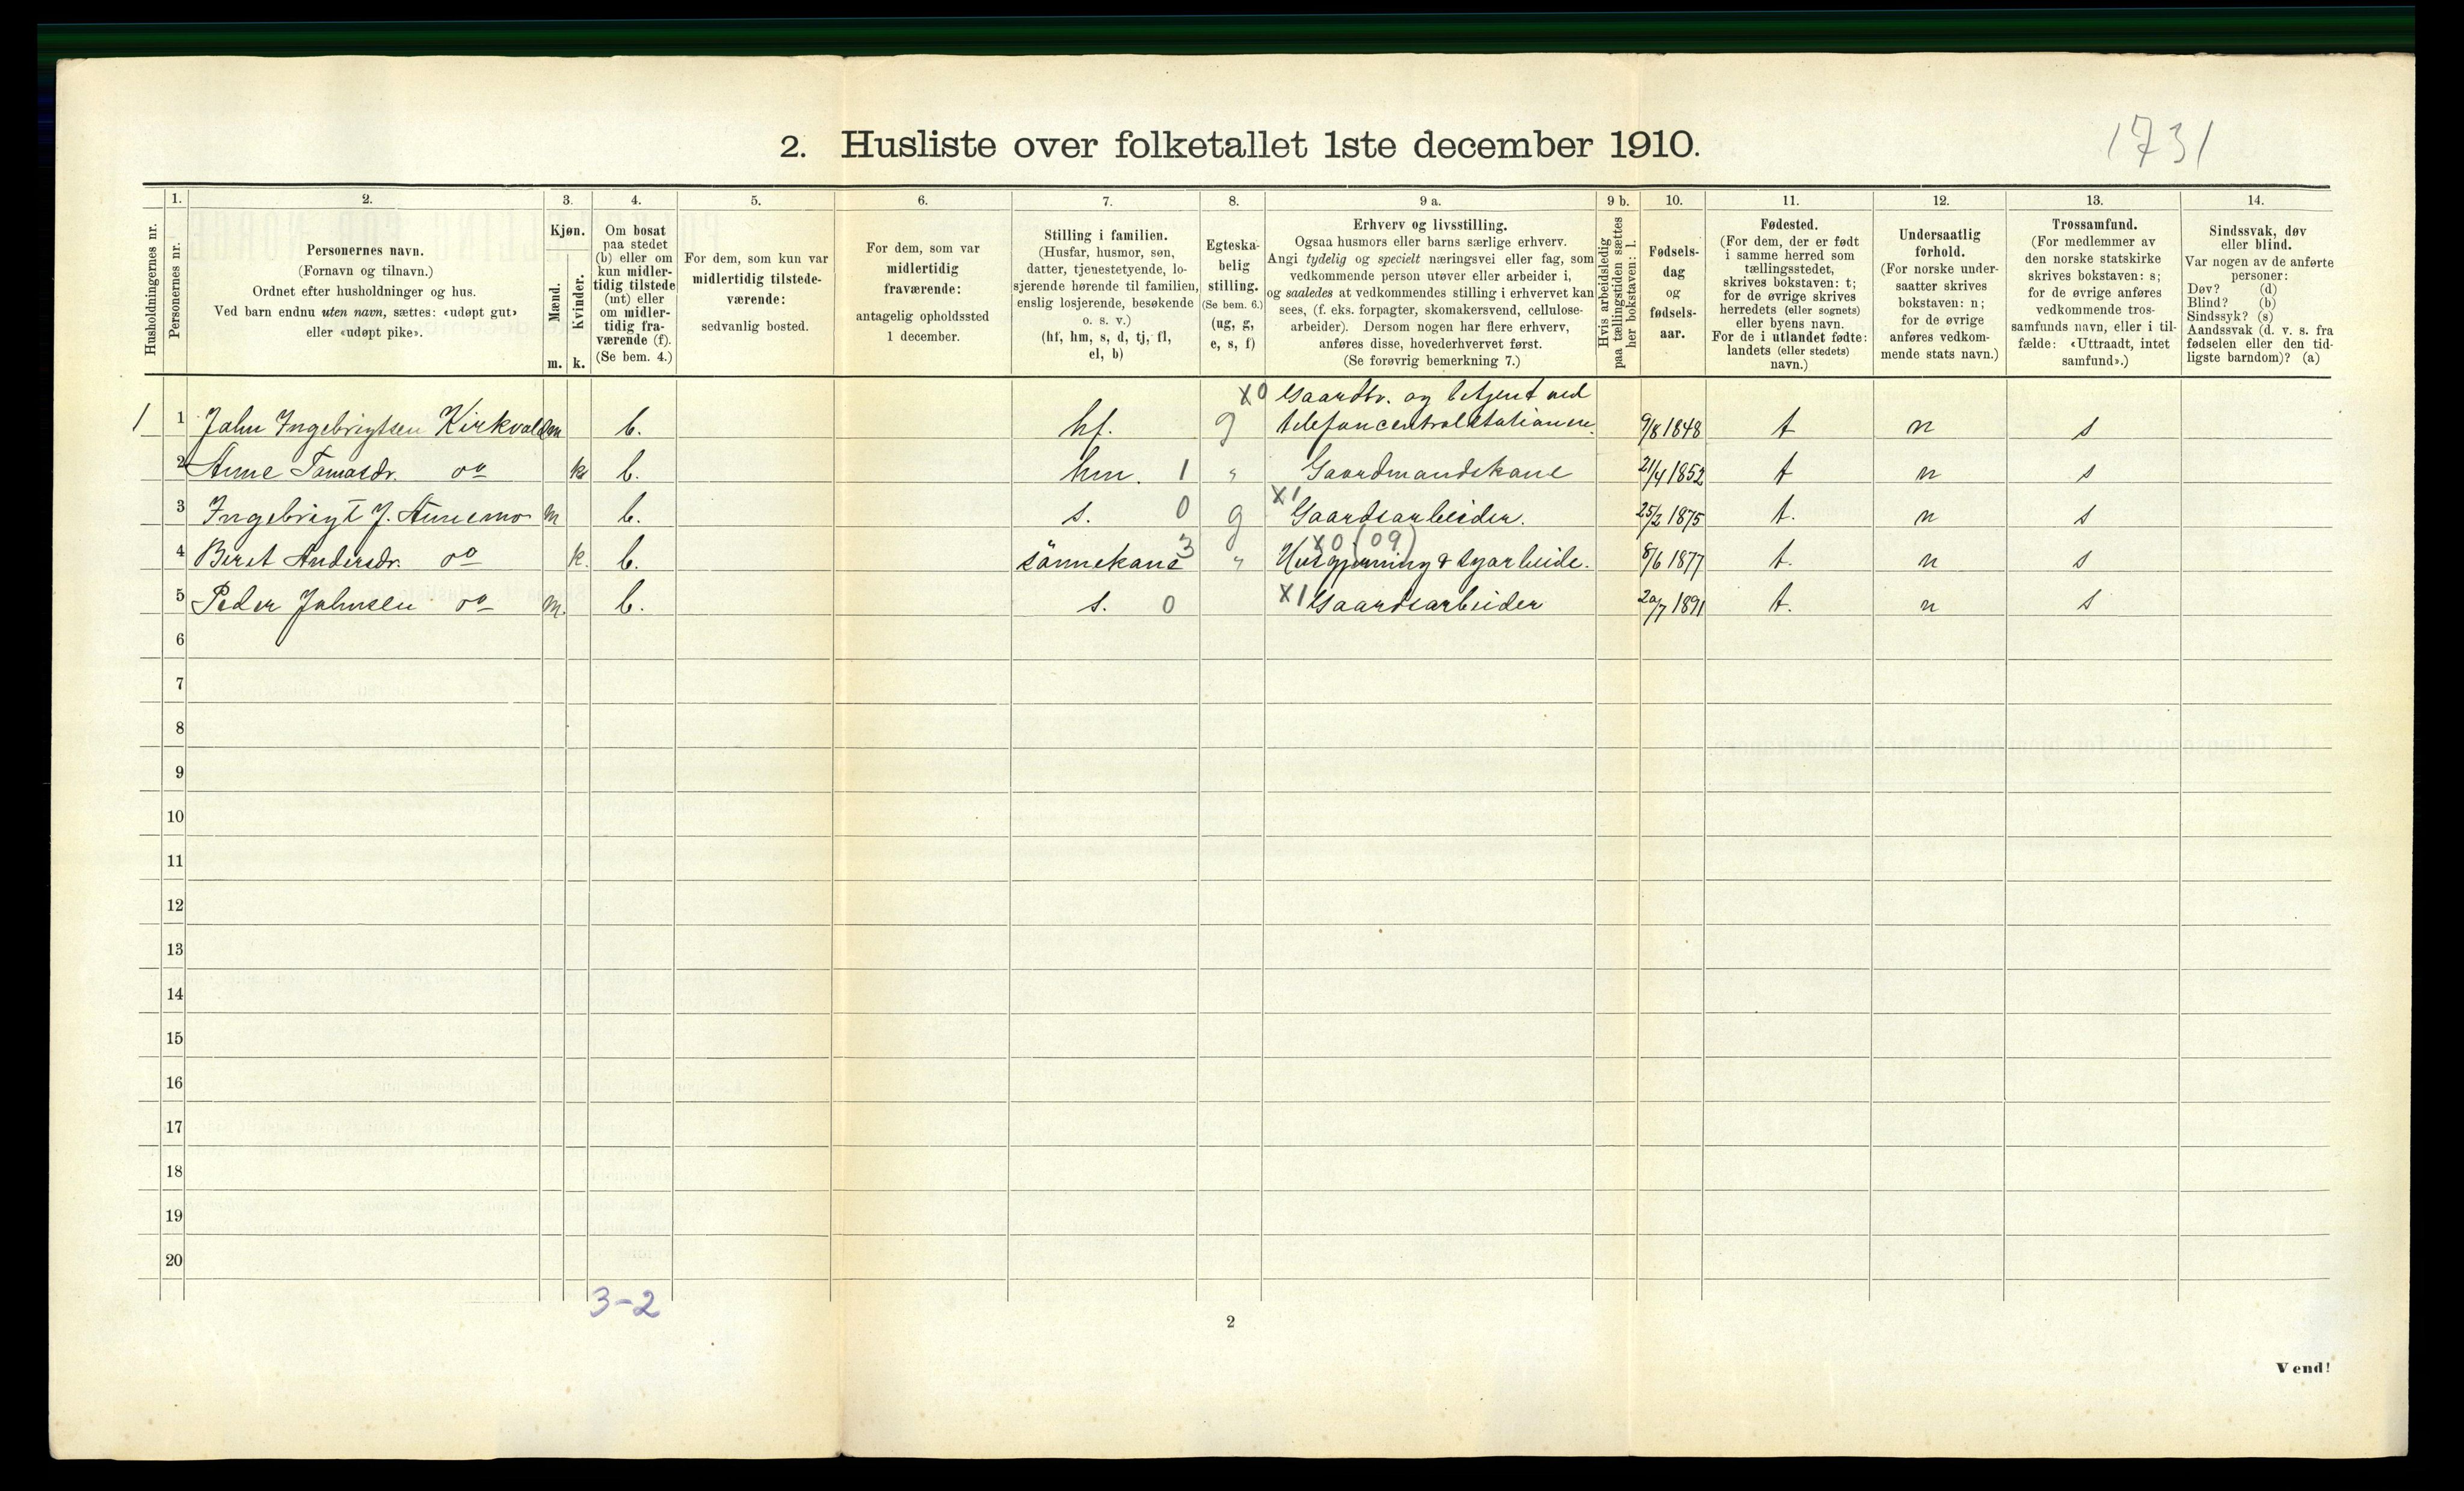 1731
2. Husliste over folketallet 1ste december 1910.
Husholdningernes nr.
1.
Personernes nr.
2.
Personernes navn.
(Fornavn og tilnavn.)
Ordnet efter husholdninger og hus.
Ved barn endnu uten navn, sættes: «udøpt gut»
eller «udøpt pike».
3.
Kjøn.
Mænd.
Kvinder.
m. k.
4.
Om bosat
paa stedet
(b) eller om
kun midler-
tidig tilstede
(mt) eller
om midler-
tidig fra-
værende (f).
(Se bem. 4.)
5.
For dem, som kun var
midlertidig tilstede-
værende:
sedvanlig bosted.
6.
For dem, som var
midlertidig
fraværende:
antagelig opholdssted
1 december.
7.
Stilling i familien.
(Husfar, husmor, søn,
datter, tjenestetyende, lo-
sjerende hørende til familien,
enslig losjerende, besøkende
o. s. v.)
(hf, hm, s, d, tj, fl,
el, b)
8.
Egteska-
belig
stilling.
(Se bem. 6.)
(ug, g,
e, s, f)
9 a.
Erhverv og livsstilling.
Ogsaa husmors eller barns særlige erhverv.
Angi tydelig og specielt næringsvei eller fag, som
vedkommende person utøver eller arbeider i,
og saaledes at vedkommendes stilling i erhvervet kan
sees, (f. eks. forpagter, skomakersvend, cellulose-
arbeider). Dersom nogen har flere erhverv,
anføres disse, hovederhvervet først.
(Se forøvrig bemerkning 7.)
9 b.
Hvis arbeidsledig
paa tællingstiden sættes
her bokstaven: l.
10.
Fødsels-
dag
og
fødsels-
aar.
11.
Fødested.
(For dem, der er født
i samme herred som
tællingsstedet,
skrives bokstaven: t;
for de øvrige skrives
herredets (eller sognets)
eller byens navn.
For de i utlandet fødte:
landets (eller stedets)
navn.)
12.
Undersaatlig
forhold.
(For norske under-
saatter skrives
bokstaven: n;
for de øvrige
anføres vedkom-
mende stats navn.)
13.
Trossamfund.
(For medlemmer av
den norske statskirke
skrives bokstaven: s;
for de øvrige anføres
vedkommende tros-
samfunds navn, eller i til-
fælde: «Uttraadt, intet
samfund».)
14.
Sindssvak, døv
eller blind.
Var nogen av de anførte
personer:
Døv? (d)
Blind? (b)
Sindssyk? (s)
Aandssvak (d. v. s. fra
fødselen eller den tid-
ligste barndom)? (a)
X0 Gaardbr. og betjent ved
1 1 John Ingebrigtsen Kirkvold m b. hf. g telefoncentralstationen. 9/8 1848 t n s
2 Anne Tomasdr. do k b. hm. 1 „ Gaardmandskone 21/4 1852 t n s
X1
3 Ingebrigt J. Annemo m b. s. 0 g Gaardsarbeider. 25/2 1875 t. n s
X0 (09)
4 Beret Andersdr. do k. b. sönnekone 3 „ Husgjerning & syarbeide. 8/6 1877 t. n s
5 Peder Johnsen do m. b. s. 0 X1 Gaardsarbeider 20/7 1891 t. n s
6
7
8
9
10
11
12
13
14
15
16
17
18
19
20
3-2
2
Vend!